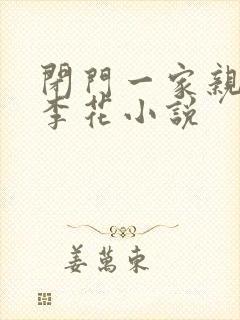 閉門一家親
李花小說
姜萬東